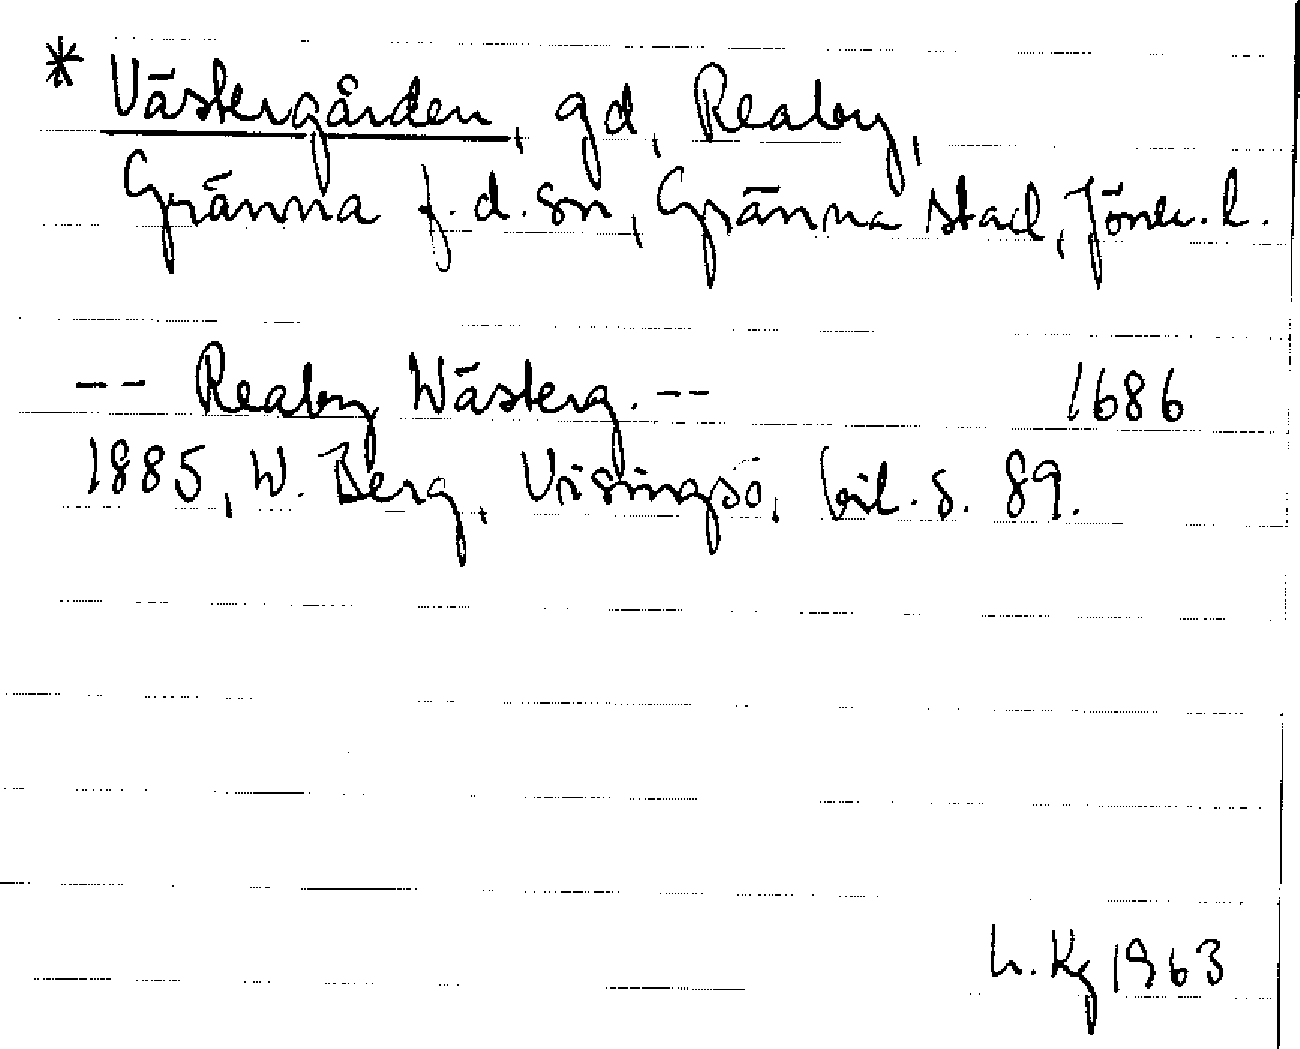 * Västergården, gd, Reaby,
Gränna f.d. sn, Gränna stad, Jönk. l.
-- Reaby Wästerg. -- 1686
1885, W. Berg, Visingsö, bil. s. 89.
h. Kg 1963